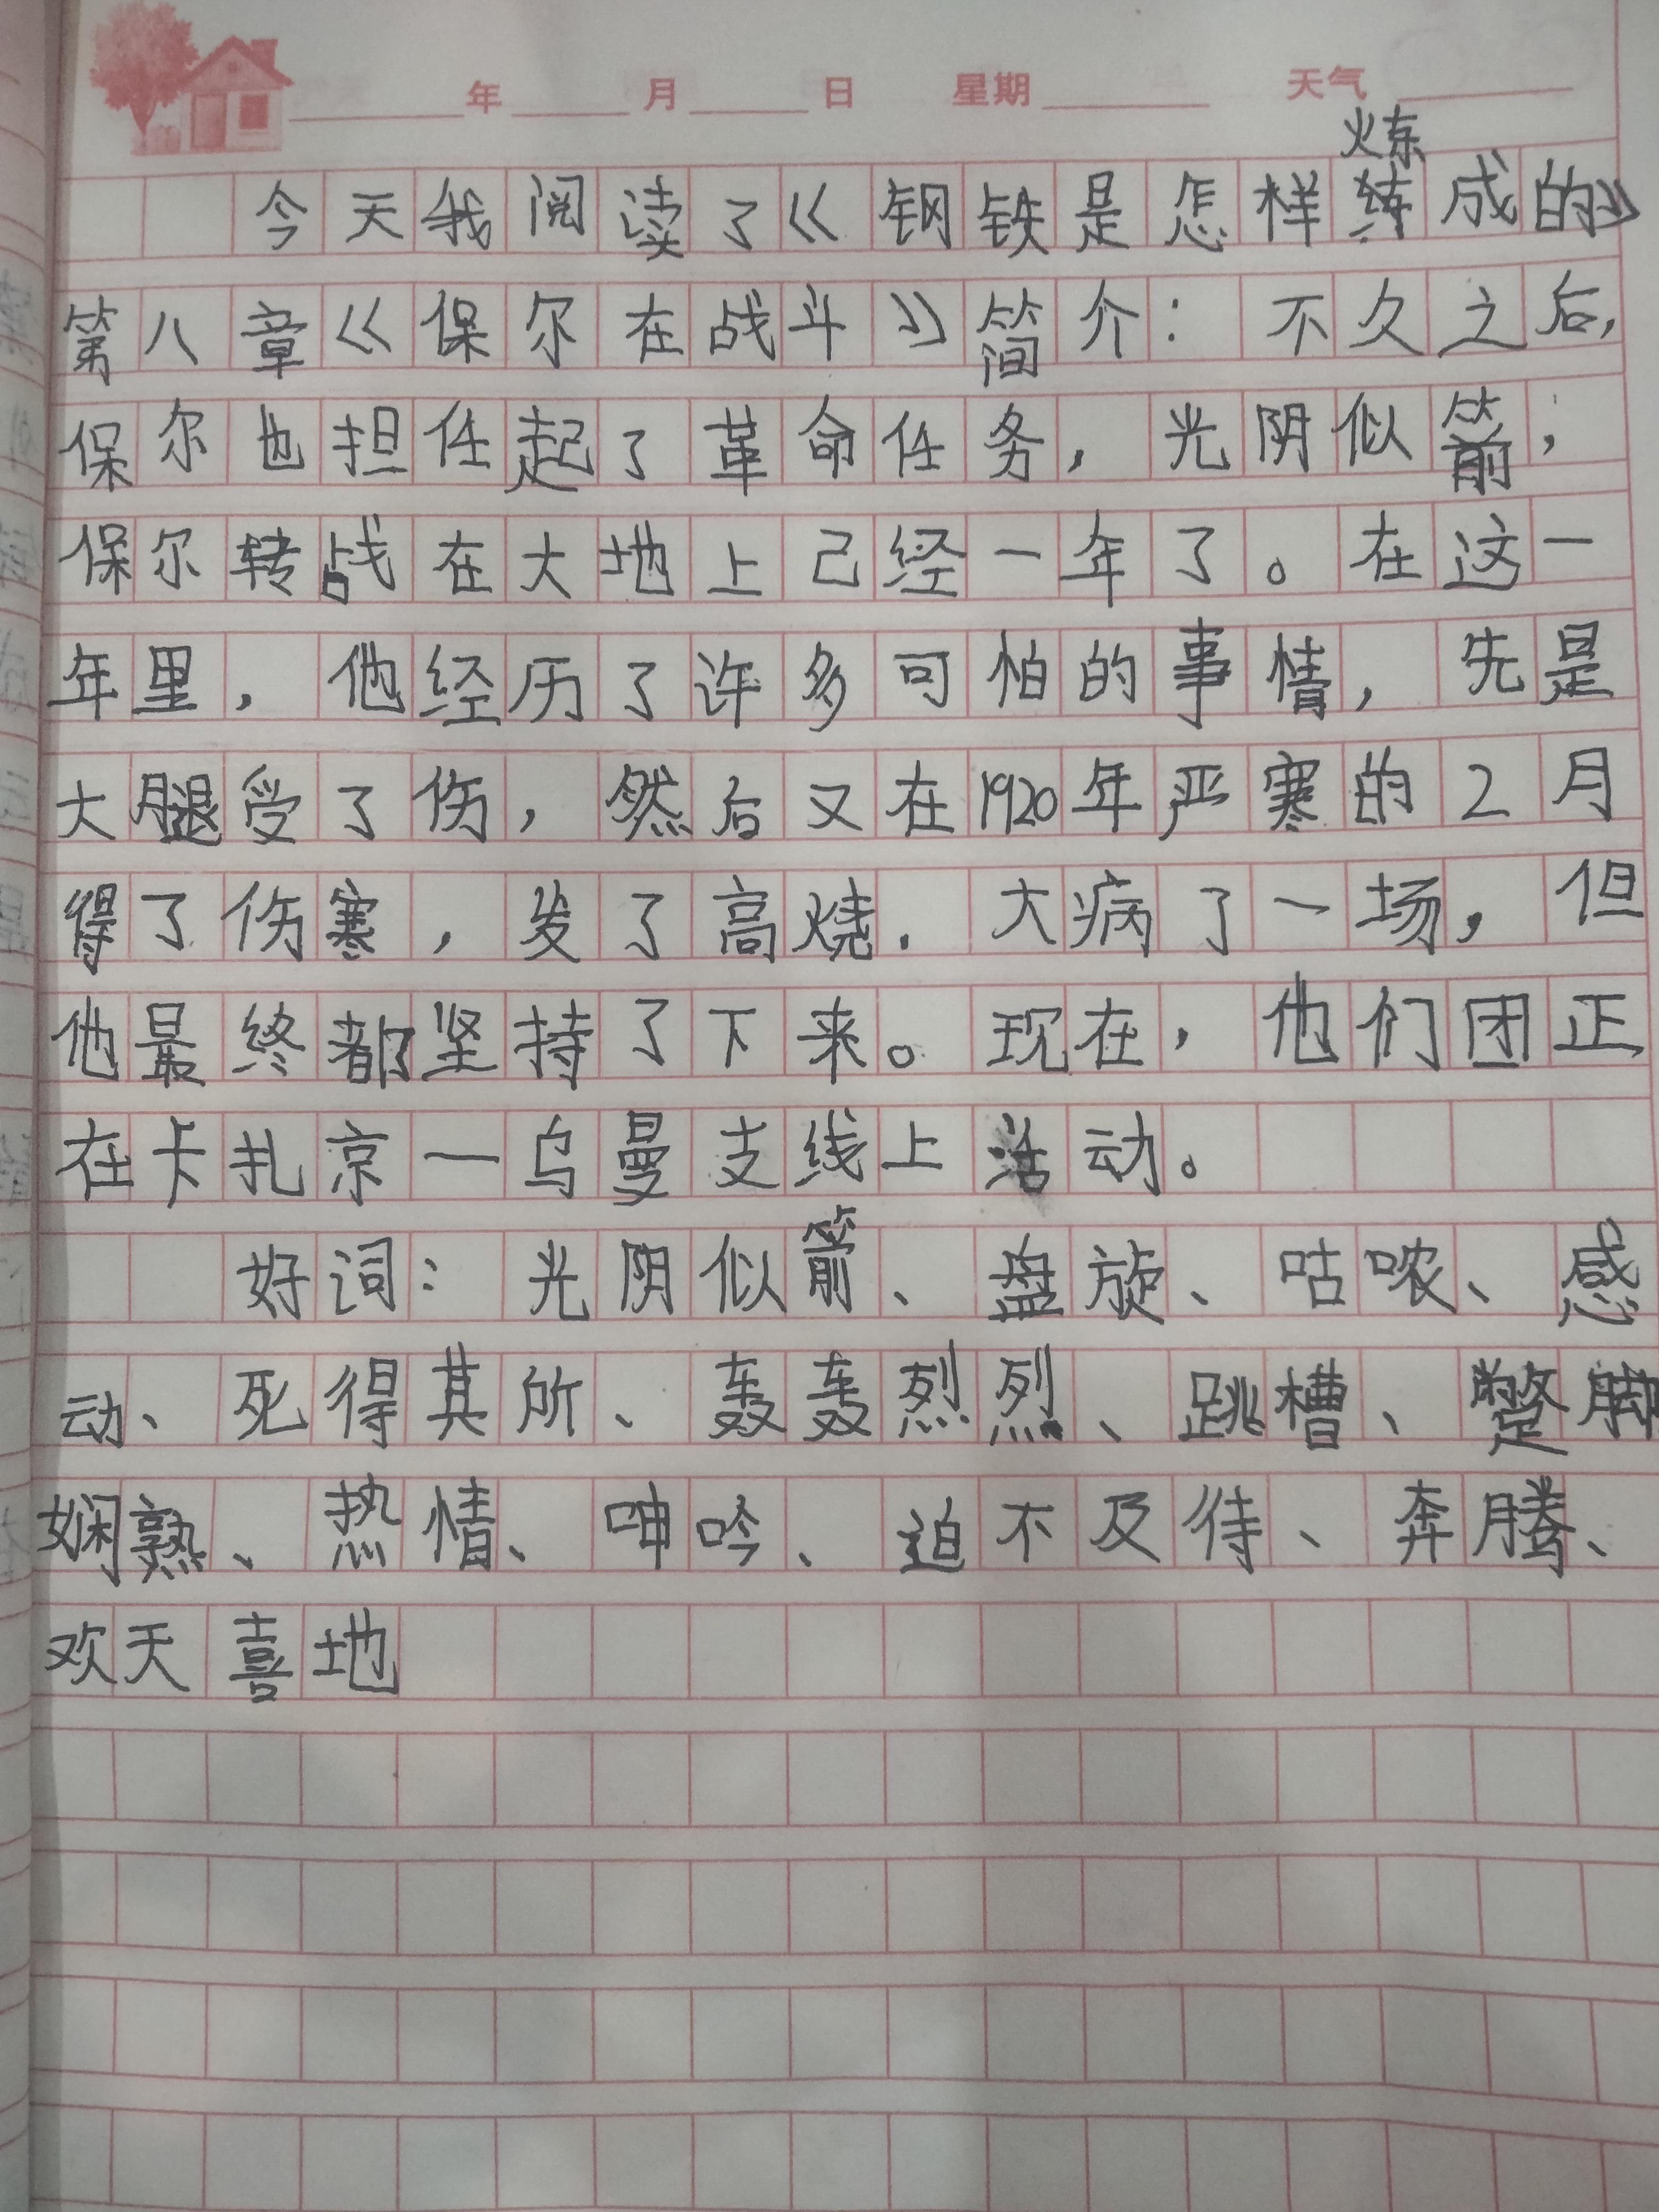 年 月 日 星期 天气
炼
今天我阅读了《钢铁是怎样练成的》
第八章《保尔在战斗》简介：不久之后，
保尔也担任起了革命任务，光阴似箭，
保尔转战在大地上已经一年了。在这一
年里，他经历了许多可怕的事情，先是
大腿受了伤，然后又在1920年严寒的2月
得了伤寒，发了高烧，大病了一场，但
他最终都坚持了下来。现在，他们团正
在卡扎京一乌曼支线上活动。
好词：光阴似箭、盘旋、咕哝、感
动、死得其所、轰轰烈烈、跳槽、蹩脚
娴熟、热情、呻吟、迫不及待、奔腾、
欢天喜地